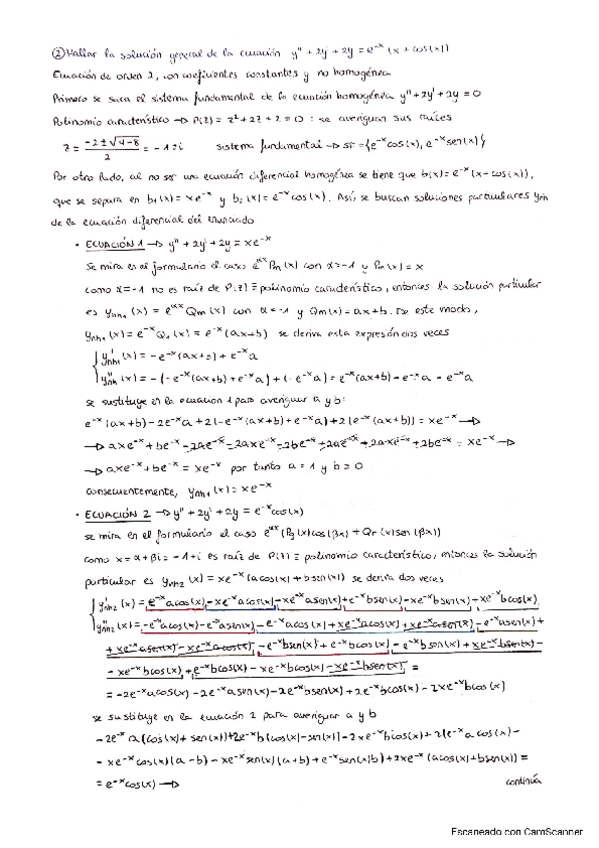 ② Hallar la solución general de la ecuación y'' + 2y' + 2y = e^-x (x + cos(x))
Ecuación de orden 2, con coeficientes constantes y no homogénea
Primero se saca el sistema fundamental de la ecuación homogénea y'' + 2y' + 2y = 0
Polinomio característico → P(z) = z² + 2z + 2 = 0 : se averiguan sus raíces
z = (-2 ± √(4-8))/2 = -1 ± i   sistema fundamental → sf = {e^-x cos(x), e^-x sen(x)}
Por otro lado, al no ser una ecuación diferencial homogénea se tiene que b(x) = e^-x (x + cos(x)),
que se separa en b₁(x) = xe^-x y b₂(x) = e^-x cos(x). Así, se buscan soluciones particulares ynh
de la ecuación diferencial del enunciado
• ECUACIÓN 1 → y'' + 2y' + 2y = xe^-x
Se mira en el formulario el caso e^αx Pn(x) con α = -1 y Pn(x) = x
como α = -1 no es raíz de P(z) ≡ polinomio característico, entonces la solución particular
es ynh₁(x) = e^αx Qm(x) con α = -1 y Qm(x) = ax + b. De este modo,
ynh₁(x) = e^-x Q₁(x) = e^-x (ax+b) se deriva esta expresión dos veces
y'nh₁(x) = -e^-x (ax+b) + e^-x a
y''nh₁(x) = -(-e^-x (ax+b) + e^-x a) + (-e^-x a) = e^-x (ax+b) - e^-x a - e^-x a
se sustituye en la ecuación 1 para averiguar a y b:
e^-x (ax+b) - 2e^-x a + 2(-e^-x (ax+b) + e^-x a) + 2(e^-x (ax+b)) = xe^-x →
→ axe^-x + be^-x - 2ae^-x - 2axe^-x - 2be^-x + 2ae^-x + 2axe^-x + 2be^-x = xe^-x →
→ axe^-x + be^-x = xe^-x por tanto a = 1 y b = 0
consecuentemente, ynh₁(x) = xe^-x
• ECUACIÓN 2 → y'' + 2y' + 2y = e^-x cos(x)
se mira en el formulario el caso e^αx (Pq(x) cos(βx) + Qr(x) sen(βx))
como α + βi = -1 + i es raíz de P(z) ≡ polinomio característico, entonces la solución
particular es ynh₂(x) = xe^-x (a cos(x) + b sen(x)) se deriva dos veces
y'nh₂(x) = e^-x a cos(x) - xe^-x a cos(x) - xe^-x a sen(x) + e^-x b sen(x) - xe^-x b sen(x) + xe^-x b cos(x)
y''nh₂(x) = -e^-x a cos(x) - e^-x a sen(x) - e^-x a cos(x) + xe^-x a cos(x) + xe^-x a sen(x) - e^-x a sen(x) +
+ xe^-x a sen(x) - xe^-x a cos(x) - e^-x b sen(x) + e^-x b cos(x) - e^-x b sen(x) + xe^-x b sen(x) -
- xe^-x b cos(x) + e^-x b cos(x) - xe^-x b cos(x) - xe^-x b sen(x) =
= -2e^-x a cos(x) - 2e^-x a sen(x) - 2e^-x b sen(x) + 2e^-x b cos(x) - 2xe^-x b cos(x)
se sustituye en la ecuación 2 para averiguar a y b
-2e^-x a (cos(x) + sen(x)) + 2e^-x b (cos(x) - sen(x)) - 2xe^-x b cos(x) + 2(e^-x a cos(x) -
- xe^-x cos(x) (a-b) - xe^-x sen(x) (a+b) + e^-x sen(x) b) + 2xe^-x (a cos(x) + b sen(x)) =
= e^-x cos(x) →   continúa
Escaneado con CamScanner